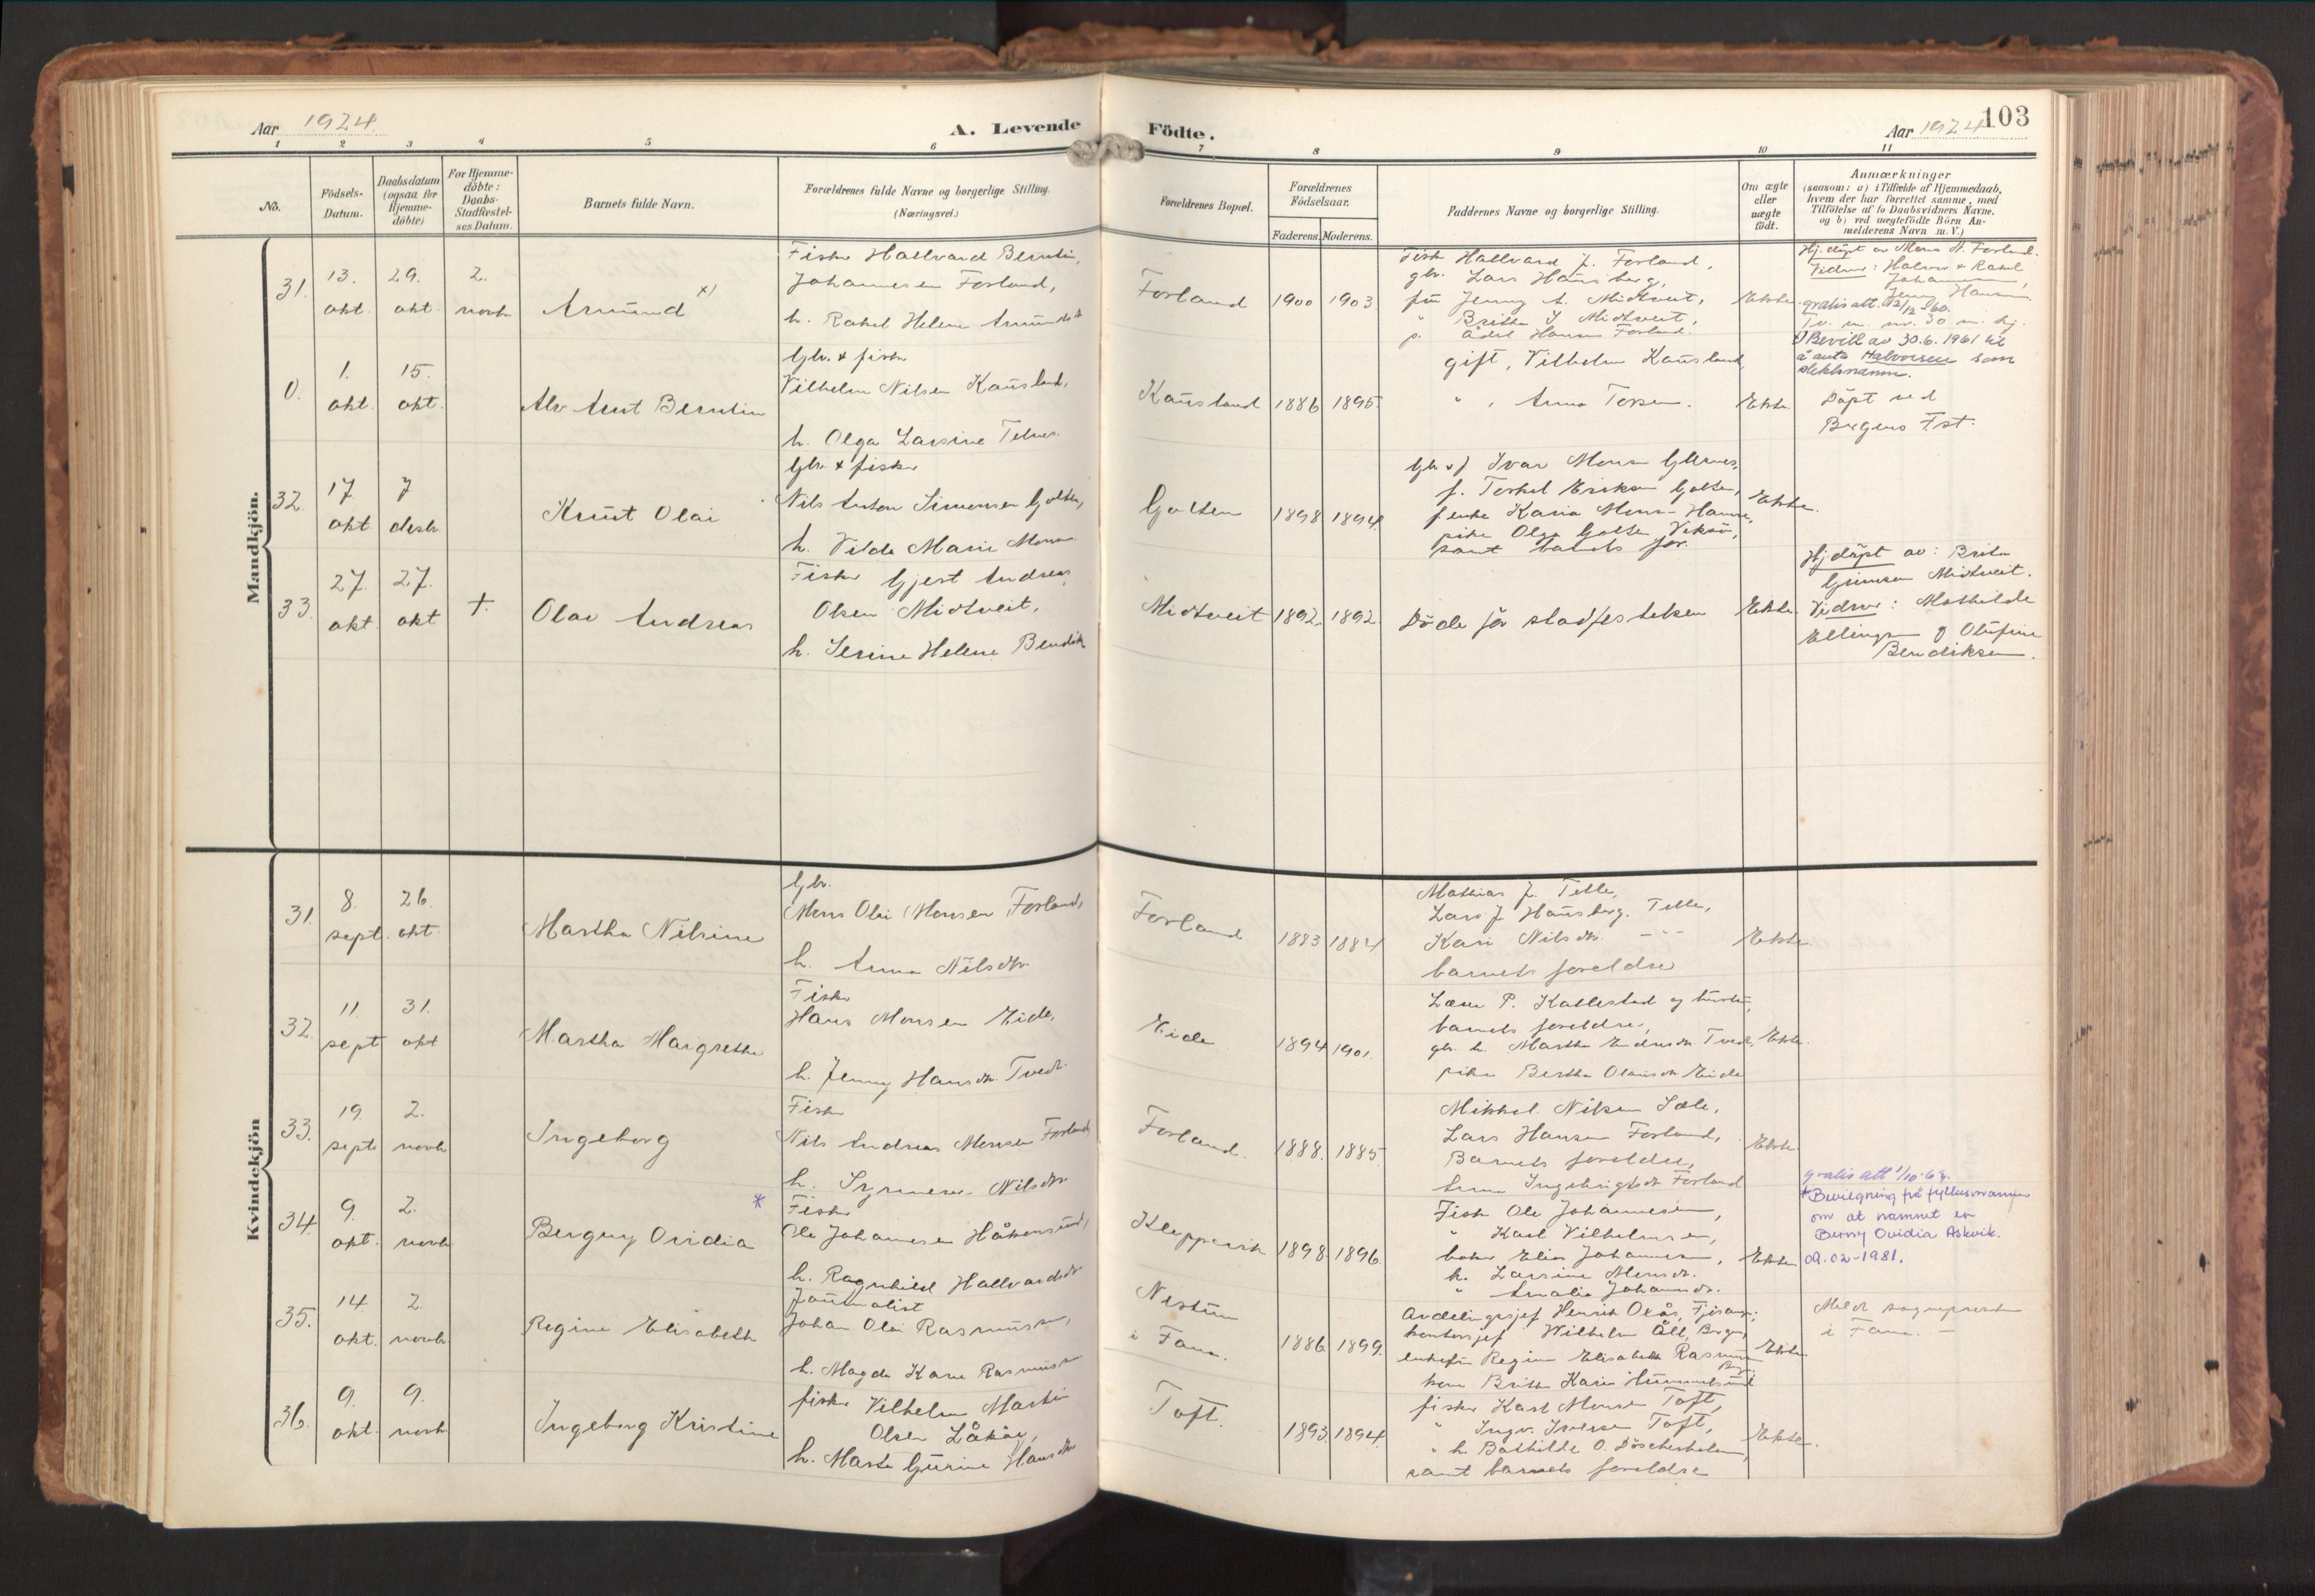 Aar 1924.
A. Levende
Födte.
Aar 1924
103
1 2 3 4 5 6 7 8 9 10 11
No.
Födsels-Datum.
Daabsdatum (ogsaa for Hjemme-döbte)
For Hjemme-döbte: Daabs-Stadfæstel-ses Datum.
Barnets fulde Navn.
Forældrenes fulde Navne og borgerlige Stilling.
(Næringsvei.)
Forældrenes Bopæl.
Forældrenes Födselsaar.
Faderens. Moderens.
Faddernes Navne og borgerlige Stilling.
Om ægte eller uægte födt.
Anmærkninger
(saasom: a) i Tilfælde af Hjemmedaab,
hvem der har forrettet samme, med
Tilföielse af to Daabsvidners Navne.
og b) ved uægtefödte Börn An-
melderens Navn m. V.)
Mandkjön.
31. 13. okt. 29. okt. 2. novbr
Amund x)
Fisker Hallvard Berntin,
Johannesen Forland,
h. Rakel Helene
Forland 1900 1903
Fisk. Hallvard J. Forland,
gbr. Lars Hansberg,
fru Jenny A. Midtveit,
" Britha J Midtveit,
p. Hansen Forland.
Ekte.
Hj.døpt av Mons N. Forland.
Vidner: Halvor & Rakel
Johannesen,
Jenny Hansen.
gratis att. 12/12 60.
Tv. m. nr. 30 m. kj.
x) Bevill av 30.6.1961 til
å anta Halvorsen som
slektsnavn.
0. 1. okt. 15. okt.
Alv Arnt Berntin
Gbr. & fisker
Vilhelm Nilsen Kausland,
h. Olga Larsine
Kausland 1886 1895.
gift, Vilhelm Kausland,
" , Anna
Ekte.
Døpt ved
Bergens Fst.
32. 17. okt 7 desbr.
Knut Olai
Gbr. & fisker
Nils Anton Simonsen Golten,
h. Vilde Marie Mons
Golten 1898 1894.
Gbr & f Ivar Monsen
f. Torkel Eriksen Golten,
f. enke Karia Mons
pike Olga Golten Veksø,
samt barnets far.
Ekte.
33. 27. okt. 27. okt †.
Olav Andreas
Fisker Gjert Andreas
Olsen Midtveit,
h. Serine Helene
Midtveit 1892. 1892.
Døde før stadfestelsen
Ekte.
Hj.døpt av: Brita
Grimsen Midtveit.
Vidner: Mathilde
Ellingsen og Olufine
Bendiksen.
Kvindekjön
31. 8. sept. 26. okt.
Martha Nilsine
Gbr.
Mons Olai Monsen Forland,
h. Anna Nilsdtr.
Forland 1883 1884
Mathias J. Telle,
Lars J Hausberg, Telle,
Kari Nilsdtr. - " -
barnets foreldre
Ekte
32. 11. sept 31. okt
Martha Margrethe
Fisker
Hans Monsen Eide,
h. Jenny Hansdtr. Tveit.
Eide 1894 1901.
Lærer P. Kallestad og hustru,
barnets foreldre,
gbr. h. Martha
pike Bertha Olausdtr Eide
Ekte.
33. 19. sept. 2. novbr
Ingeborg
Fisker
Nils Andreas Monsen Forland,
h. Nilsdtr.
Forland. 1888. 1885.
Mikkel Nilsen Sæle,
Lars Hansen Forland,
Barnets foreldre,
Anna Ingebrigtsdtr Forland
Ekte
34. 9. okt. 2. novbr
Bergny Ovidia *
Fisker
Ole Johannesen Håkonsund,
h. Ragnhild Hallvardsdtr
Kleppevik 1898 1896
Fisk. Ole Johannesen,
" Karl Vilhelmsen,
baker Elias Johannesen,
h. Larsine Monsdtr.
" Amalia Johannsdtr.
Ekte
gratis att 1/10-69.
* Bevilgning frå fylkesmannen
om at namnet er
Berny Ovidia Askvik.
09.02-1981.
35. 14. okt. 2. novbr
Regine Elisabeth
Journalist
Johan Olai Rasmussen,
h. Magda Karie Rasmussen
Nestun
i Fana. 1886. 1899.
Avdelingssjef Henrik Olås, Fjøsanger,
kontorsjef Wilhelm Åll, Bergen,
enkefru Regine Elisabeth Rasmussen
Britha Karie Hummelsund
Ekte.
Meldt sogneprest
i Fana. -
36. 9. okt. 9. novbr.
Ingeborg Kristine
fisker Vilhelm Martin
Olsen Låkøy,
h. Marta Gurine Hansdtr
Toft. 1893. 1894.
fisker Karl Monsen Toft,
" Ingv. Iversen Toft,
" h. Bathilde O.
samt barnets foreldre
Ekte.